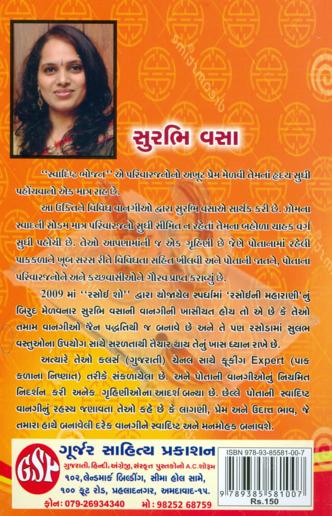 સુરભિ વસા
"સ્વાદિષ્ટ ભોજન" એ પરિવારજનોનો અખૂટ પ્રેમ મેળવી તેમનાં હૃદય સુધી
પહોંચવાનો એક માત્ર રાહ છે.
આ ઉક્તિને વિવિધ વાનગીઓ દ્વારા સુરભિ વસાએ સાર્થક કરી છે. જેમના
સ્વાદની સોડમ માત્ર પરિવારજનો સુધી સીમિત ન રહેતા તેમના બહોળા ચાહક વર્ગ
સુધી પહોંચી છે. તેઓ આપણામાંની જ એક ગૃહિણી છે જેણે પોતાનામાં રહેલી
પાકકળાને ખૂબ સરસ રીતે વિવિધતા સહિત ખીલવી અને પોતાની જાતને, પોતાના
પરિવારજનોને અને કચ્છવાસીઓને ગૌરવ પ્રાપ્ત કરાવ્યું છે.
2009 માં "રસોઈ શો" દ્વારા યોજાયેલ સ્પર્ધામાં 'રસોઈની મહારાણી'નું
બિરુદ મેળવનાર સુરભિ વસાની વાનગીની ખાસીયત હોય તો એ છે કે તેઓ
તમામ વાનગીઓ જૈન પદ્ધતિથી જ બનાવે છે અને તે પણ રસોડામાં સુલભ
વસ્તુઓના ઉપયોગ સાથે સરળતાથી તૈયાર થાય તેનું ખાસ ધ્યાન રાખે છે.
અત્યારે તેઓ કલર્સ (ગુજરાતી) ચેનલ સાથે કૂકીંગ Expert (પાક
કળાના નિષ્ણાત) તરીકે સંકળાયેલા છે. અને પોતાની વાનગીઓનું નિયમિત
નિદર્શન કરી અનેક ગૃહિણીઓના આદર્શ બન્યા છે. છેલ્લે પોતાની સ્વાદિષ્ટ
વાનગીનું રહસ્ય જણાવતા તેઓ કહે છે કે લાગણી, પ્રેમ અને ઉદાત્ત ભાવ, જે
તમારા હાથે બનાવેલી દરેક વાનગીને સ્વાદિષ્ટ અને મનમોહક બનાવશે.
GSP
ગૂર્જર સાહિત્ય પ્રકાશન
ગુજરાતી, હિન્દી, અંગ્રેજી, સંસ્કૃત પુસ્તકોનો A.C. શોરૂમ
૧૦૨, લેન્ડમાર્ક બિલ્ડીંગ, સીમા હોલ સામે,
૧૦૦ ફૂટ રોડ, પ્રહલાદનગર, અમદાવાદ-૧૫.
ફોન: 079-26934340 મો: 98252 68759
ISBN 978-93-85581-00-7
9789385581007
Rs.150